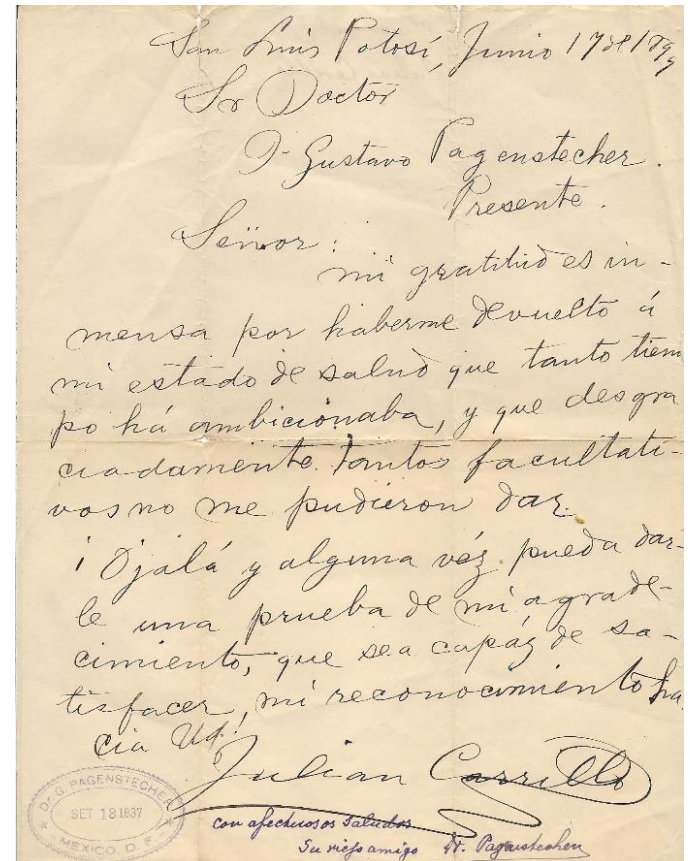 San Luis Potosí, Junio 17 de 1899
Sr Doctor
D- Gustavo Pagenstecher.
Presente.
Señor:
mi gratitud es in-
mensa por haberme devuelto á
mi estado de salud que tanto tiem
po há ambicionaba, y que desgra
ciadamente tantos facultati-
vos no me pudieron dar.
¡Ojalá y alguna véz pueda dar-
le una prueba de mi agrade-
cimiento, que sea capáz de sa-
tisfacer, mi reconocimiento ha
cia Ud!
Julian Carrillo
Dr. G. PAGENSTECHER
SET 18 1937
MEXICO, D. F.
con afectuosos saludos
Su viejo amigo Dr. Pagenstecher